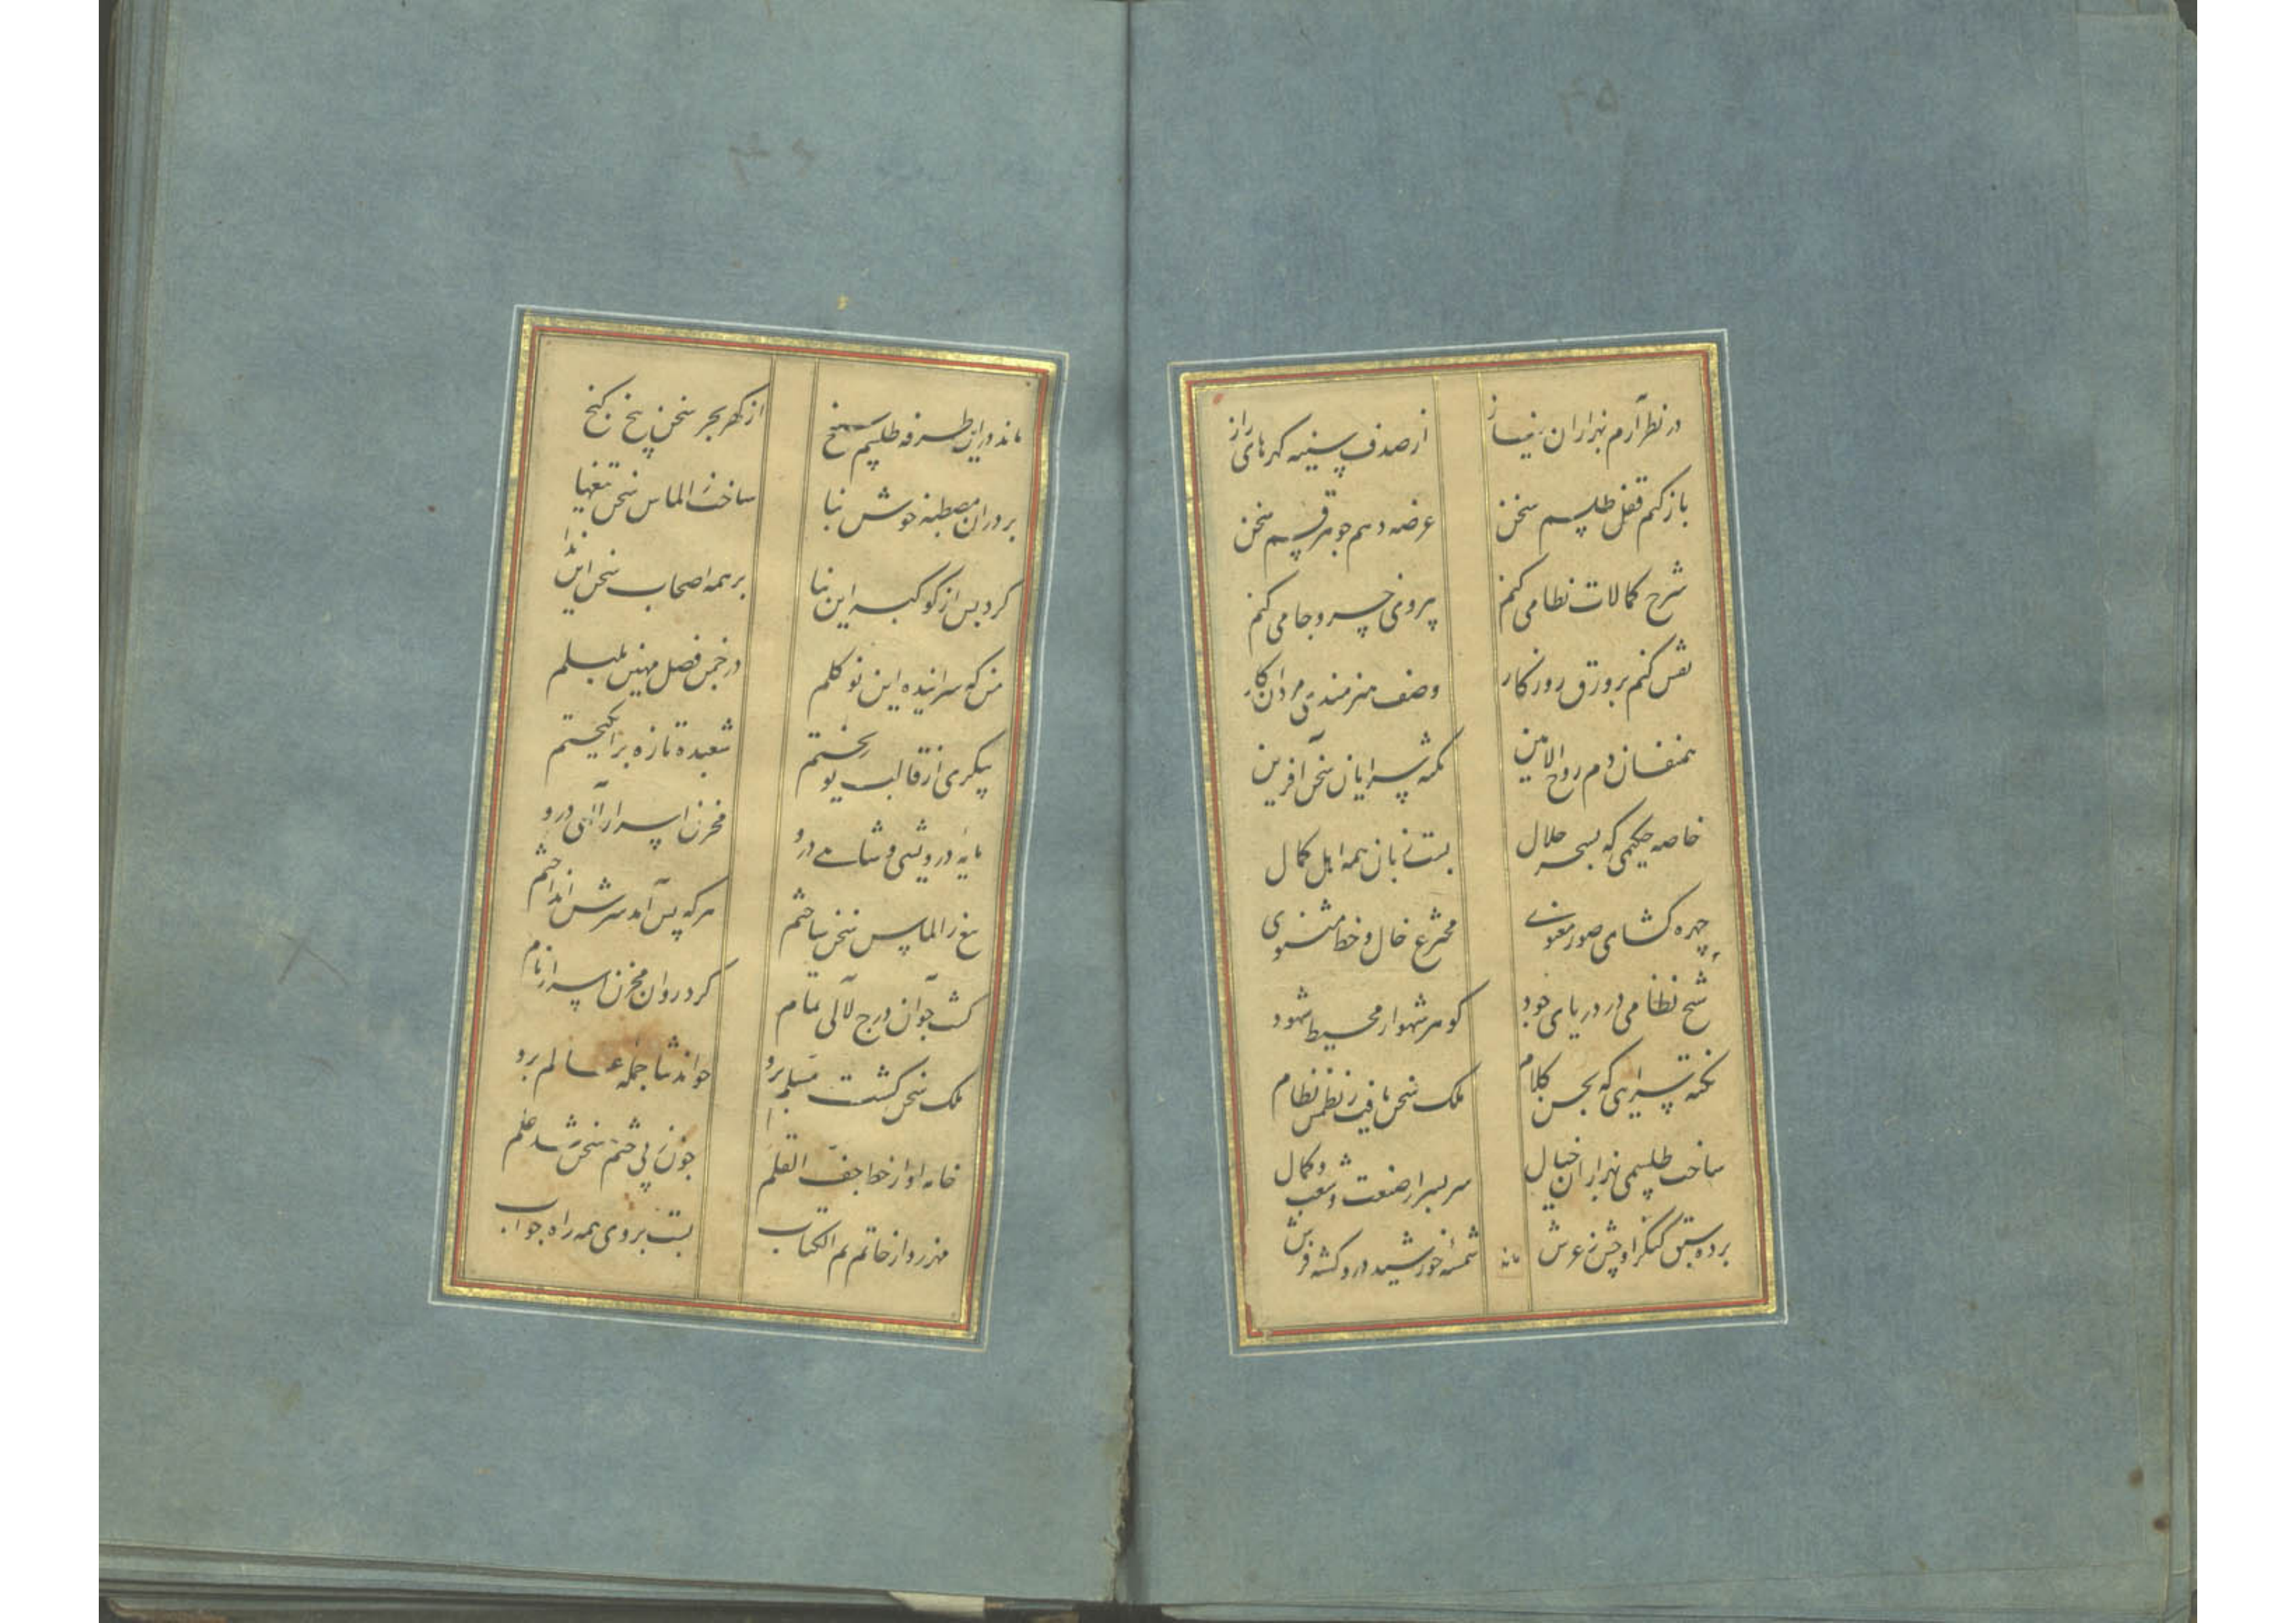 ۳۵
در نظر آرم بهزاران نیاز
از صدف سینه گهرهای راز
باز کنم قفل طلسم سخن
عرضه دهم جوهر قسم سخن
شرح کمالات نظامی کنم
پیروی خسرو و جامی کنم
نقش کنم بر ورق روزگار
وصف هنرمندی مردان کار
همنفسان دم روح الامین
نکته سرایان سخن آفرین
خاصه حکیمی که بسحر حلال
بست زبان همه اهل کمال
چهره کشای صور معنوی
مخترع خال و خط مثنوی
شیخ نظامی در دریای جود
گوهر شهوار محیط شهود
نکته سرایی که بحسن کلام
ملک سخن یافت ز نظمش نظام
ساخت طلسمی بهزاران خیال
سربسر از صنعت و شعب و کمال
برده سبق کنگر اوجش ز عرش
شمسه خورشید درو گشته فرش
ماند
۳۶
ماند در این طرفه طلسم
از گهر بحر سخن پنج گنج
بر در آن مصطبه خوش بنا
ساخت ز الماس سخن تیغها
کرد پس از کوکبه این بنا
بر همه اصحاب سخن این ندا
من که سراینده این نو گلم
در چمن فضل مهین بلبلم
پیکری از قالب نو ریختم
شعبده تازه برانگیختم
مایه درویشی و شاهی درو
مخزن اسرار الهی درو
تیغ ز الماس سخن ساختم
هر که پس آمد سرش انداختم
گشت چو آن درج لآلی تمام
کرد روان مخزن اسرار نام
ملک سخن گشت مسلم برو
خواند ثنا جمله عالم برو
خامه او از خط جف القلم
چون ز پی ختم سخن شد علم
مهر زد از خاتم ام الکتاب
بست بروی همه راه جواب